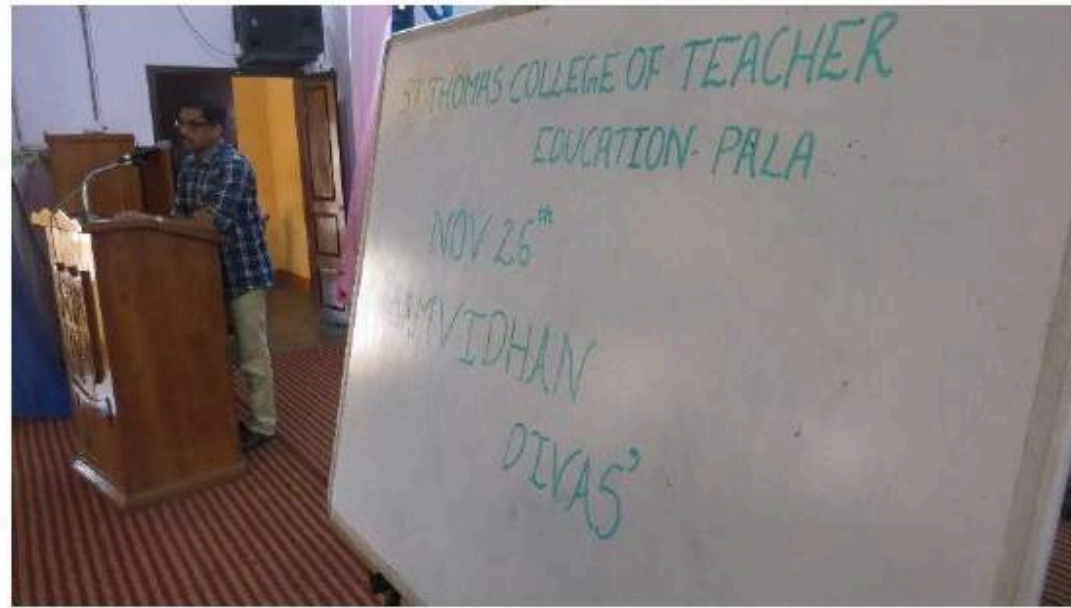 ST. THOMAS COLLEGE OF TEACHER
EDUCATION- PALA
NOV 26th
'SAMVIDHAN
DIVAS'